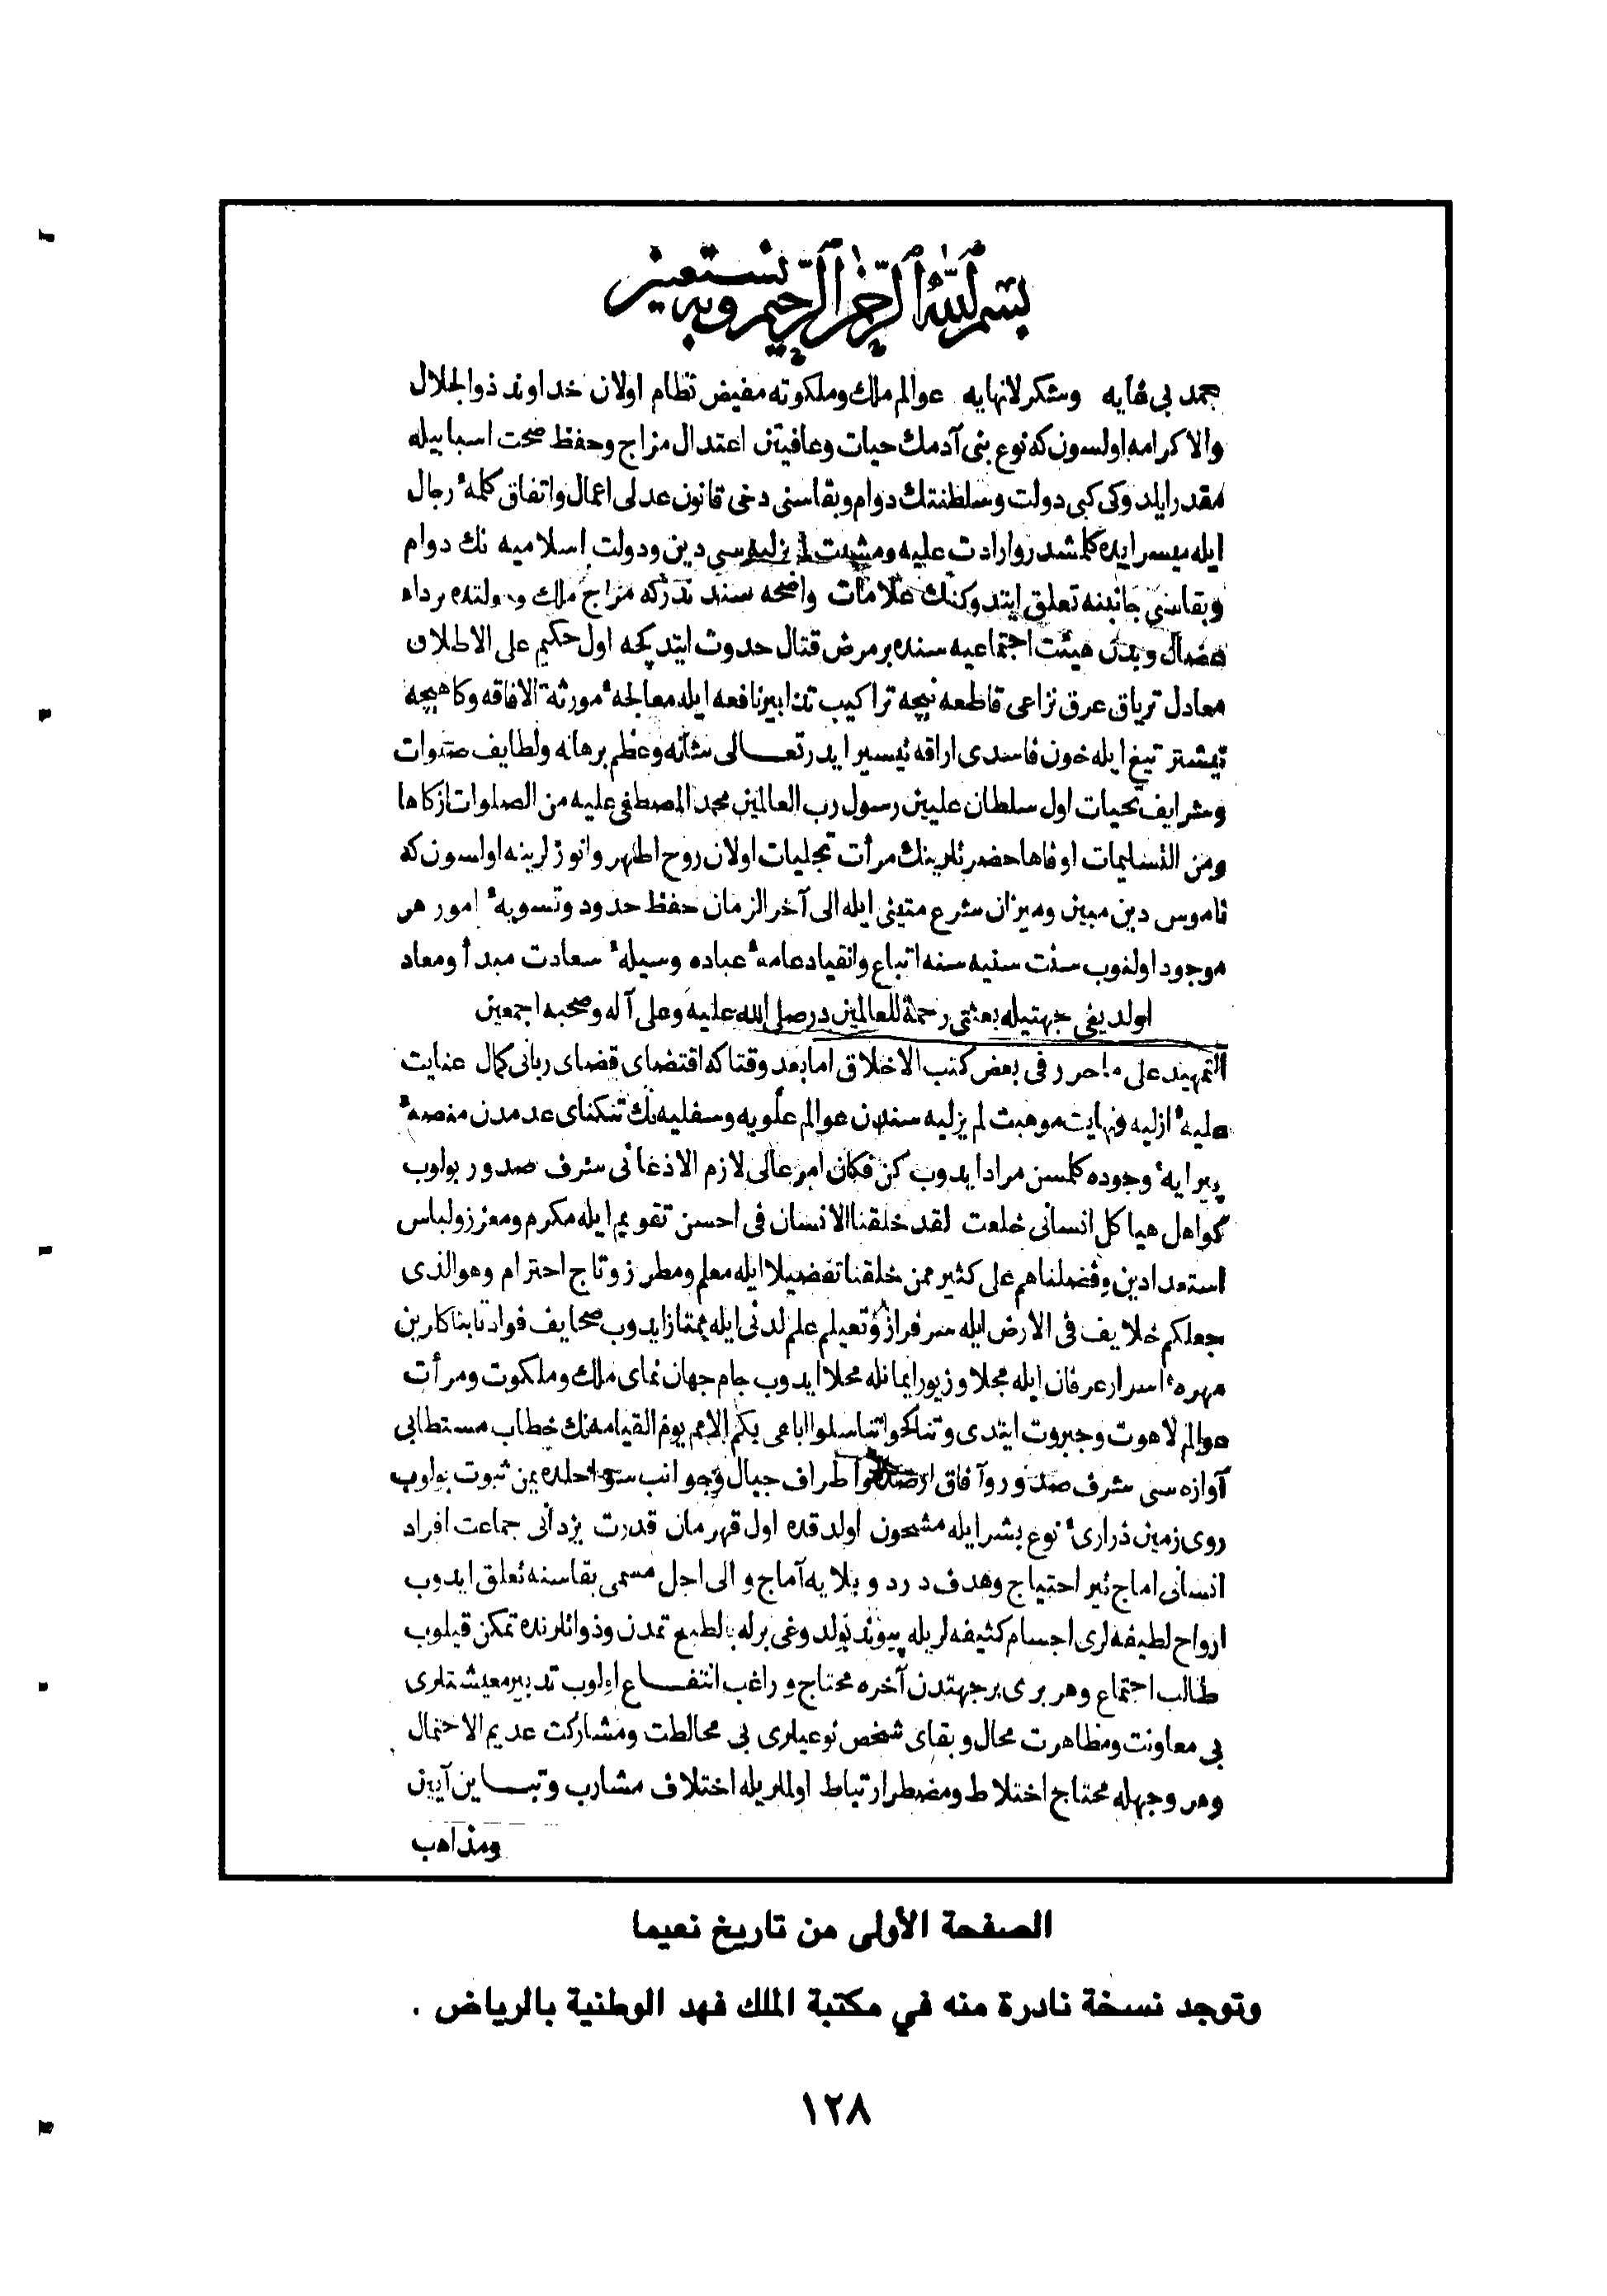 بسم الله الرحمن الرحيم وبه نستعين
حمد بى غايه وشكر لانهايه عوالم ملك وملكوته مفيض نظام اولان خداوند ذوالجلال
والاكرامه اولسون كه نوع بنى آدمك حيات وعافيتن اعتدال مزاج وحفظ صحت اسبابيله
مقدر ايلدوكى كبى دولت وسلطنتك دوام وبقاسنى دخى قانون عدلى اعمال واتفاق كلمهٔ رجال
ايله ميسر ايده كلمشدر وارادت عليه ومشيت لم يزليه سى دين ودولت اسلاميه نك دوام
وبقاسى جانبنه تعلق ايتدوكنك علامات واضحه سندندركه مزاج ملك ودولتده برداء
عضال وبدن هيئت اجتماعيه سنده بر مرض قتال حدوث ايتديكجه اول حكيم على الاطلاق
معادل ترياق عرق نزاعى قاطعه نيچه تراكيب تدابير نافعه ايله معالجهٔ مورثة الافاقه وكاهيجه
نيشتر تيغ ايله خون فاسدى اراقه تيسير ايدر تعالى شانه وعظم برهانه ولطايف صلوات
وشرايف تحيات اول سلطان عليين رسول رب العالمين محمد المصطفى عليه من الصلوات ازكاها
ومن التسليمات اوفاها حضرتلرينك مرأت تجليات اولان روح اطهر وانورلرينه اولسون كه
ناموس دين مبين وميزان شرع متينى ايله الى آخر الزمان حفظ حدود وتسويهٔ امور هر
موجود اولنوب سنت سنيه سنه اتباع وانقياد عامهٔ عباده وسيلهٔ سعادت مبدأ ومعاد
اولديغى جهتيله بعثتى رحمة للعالمين در صلى الله عليه وعلى آله وصحبه اجمعين
التمهيد على ما حرر فى بعض كتب الاخلاق اما بعد وقتاكه اقتضاى قضاى ربانى كمال عنايت
عليهٔ ازليه ونهايت موهبت لم يزليه سندن عوالم علويه وسفليه نك تنكناى عدمدن منصهٔ
پيرايهٔ وجوده كلمسن مراد ايدوب كن فكان امر عالى لازم الاذعانى شرف صدور بولوب
كواهل هياكل انسانى خلعت لقد خلقنا الانسان فى احسن تقويم ايله مكرم ومعزز ولباس
استعدادين وفضلناهم على كثير ممن خلقنا تفضيلا ايله معلم ومطرز وتاج احترام وهو الذى
جعلكم خلايف فى الارض ايله سرفراز وتعيلم علم لدنى ايله ممتاز ايدوب صحايف فواد تابناكارين
مهرهٔ اسرار عرفان ايله مجلا وزيور ايمانله محلا ايدوب جام جهان نماى ملك وملكوت ومرأت
عوالم لاهوت وجبروت ايتدى وتناكحوا تناسلوا اباهى بكم الامم يوم القيامه نك خطاب مستطابى
آوازه سى شرف صدور وآفاق ارضه واطراف جبال وجوانب سواحلده يمن ثبوت بولوب
روى زمين ذرارىٔ نوع بشر ايله مشحون اولدقده اول قهرمان قدرت يزدانى جماعت افراد
انسانى اماج تير احتياج وهدف درد وبلايه آماج والى اجل مسمى بقاسنه تعلق ايدوب
ارواح لطيفه لرى اجسام كثيفه لريله پيوند اولدوغى برله بالطبع تمدن وذواتلرنده تمكن قيلوب
طالب اجتماع وهر برى بر جهتدن آخره محتاج وراغب انتفاع اولوب تدبير معيشتلرى
بى معاونت ومظاهرت محال وبقاى شخص نوعيلرى بى مخالطت ومشاركت عديم الاحتمال
وهر وجهله محتاج اختلاط ومضطر ارتباط اولملريله اختلاف مشارب وتباين آيين
ومذاهب
الصفحة الأولى من تاريخ نعيما
وتوجد نسخة نادرة منه في مكتبة الملك فهد الوطنية بالرياض .
١٢٨